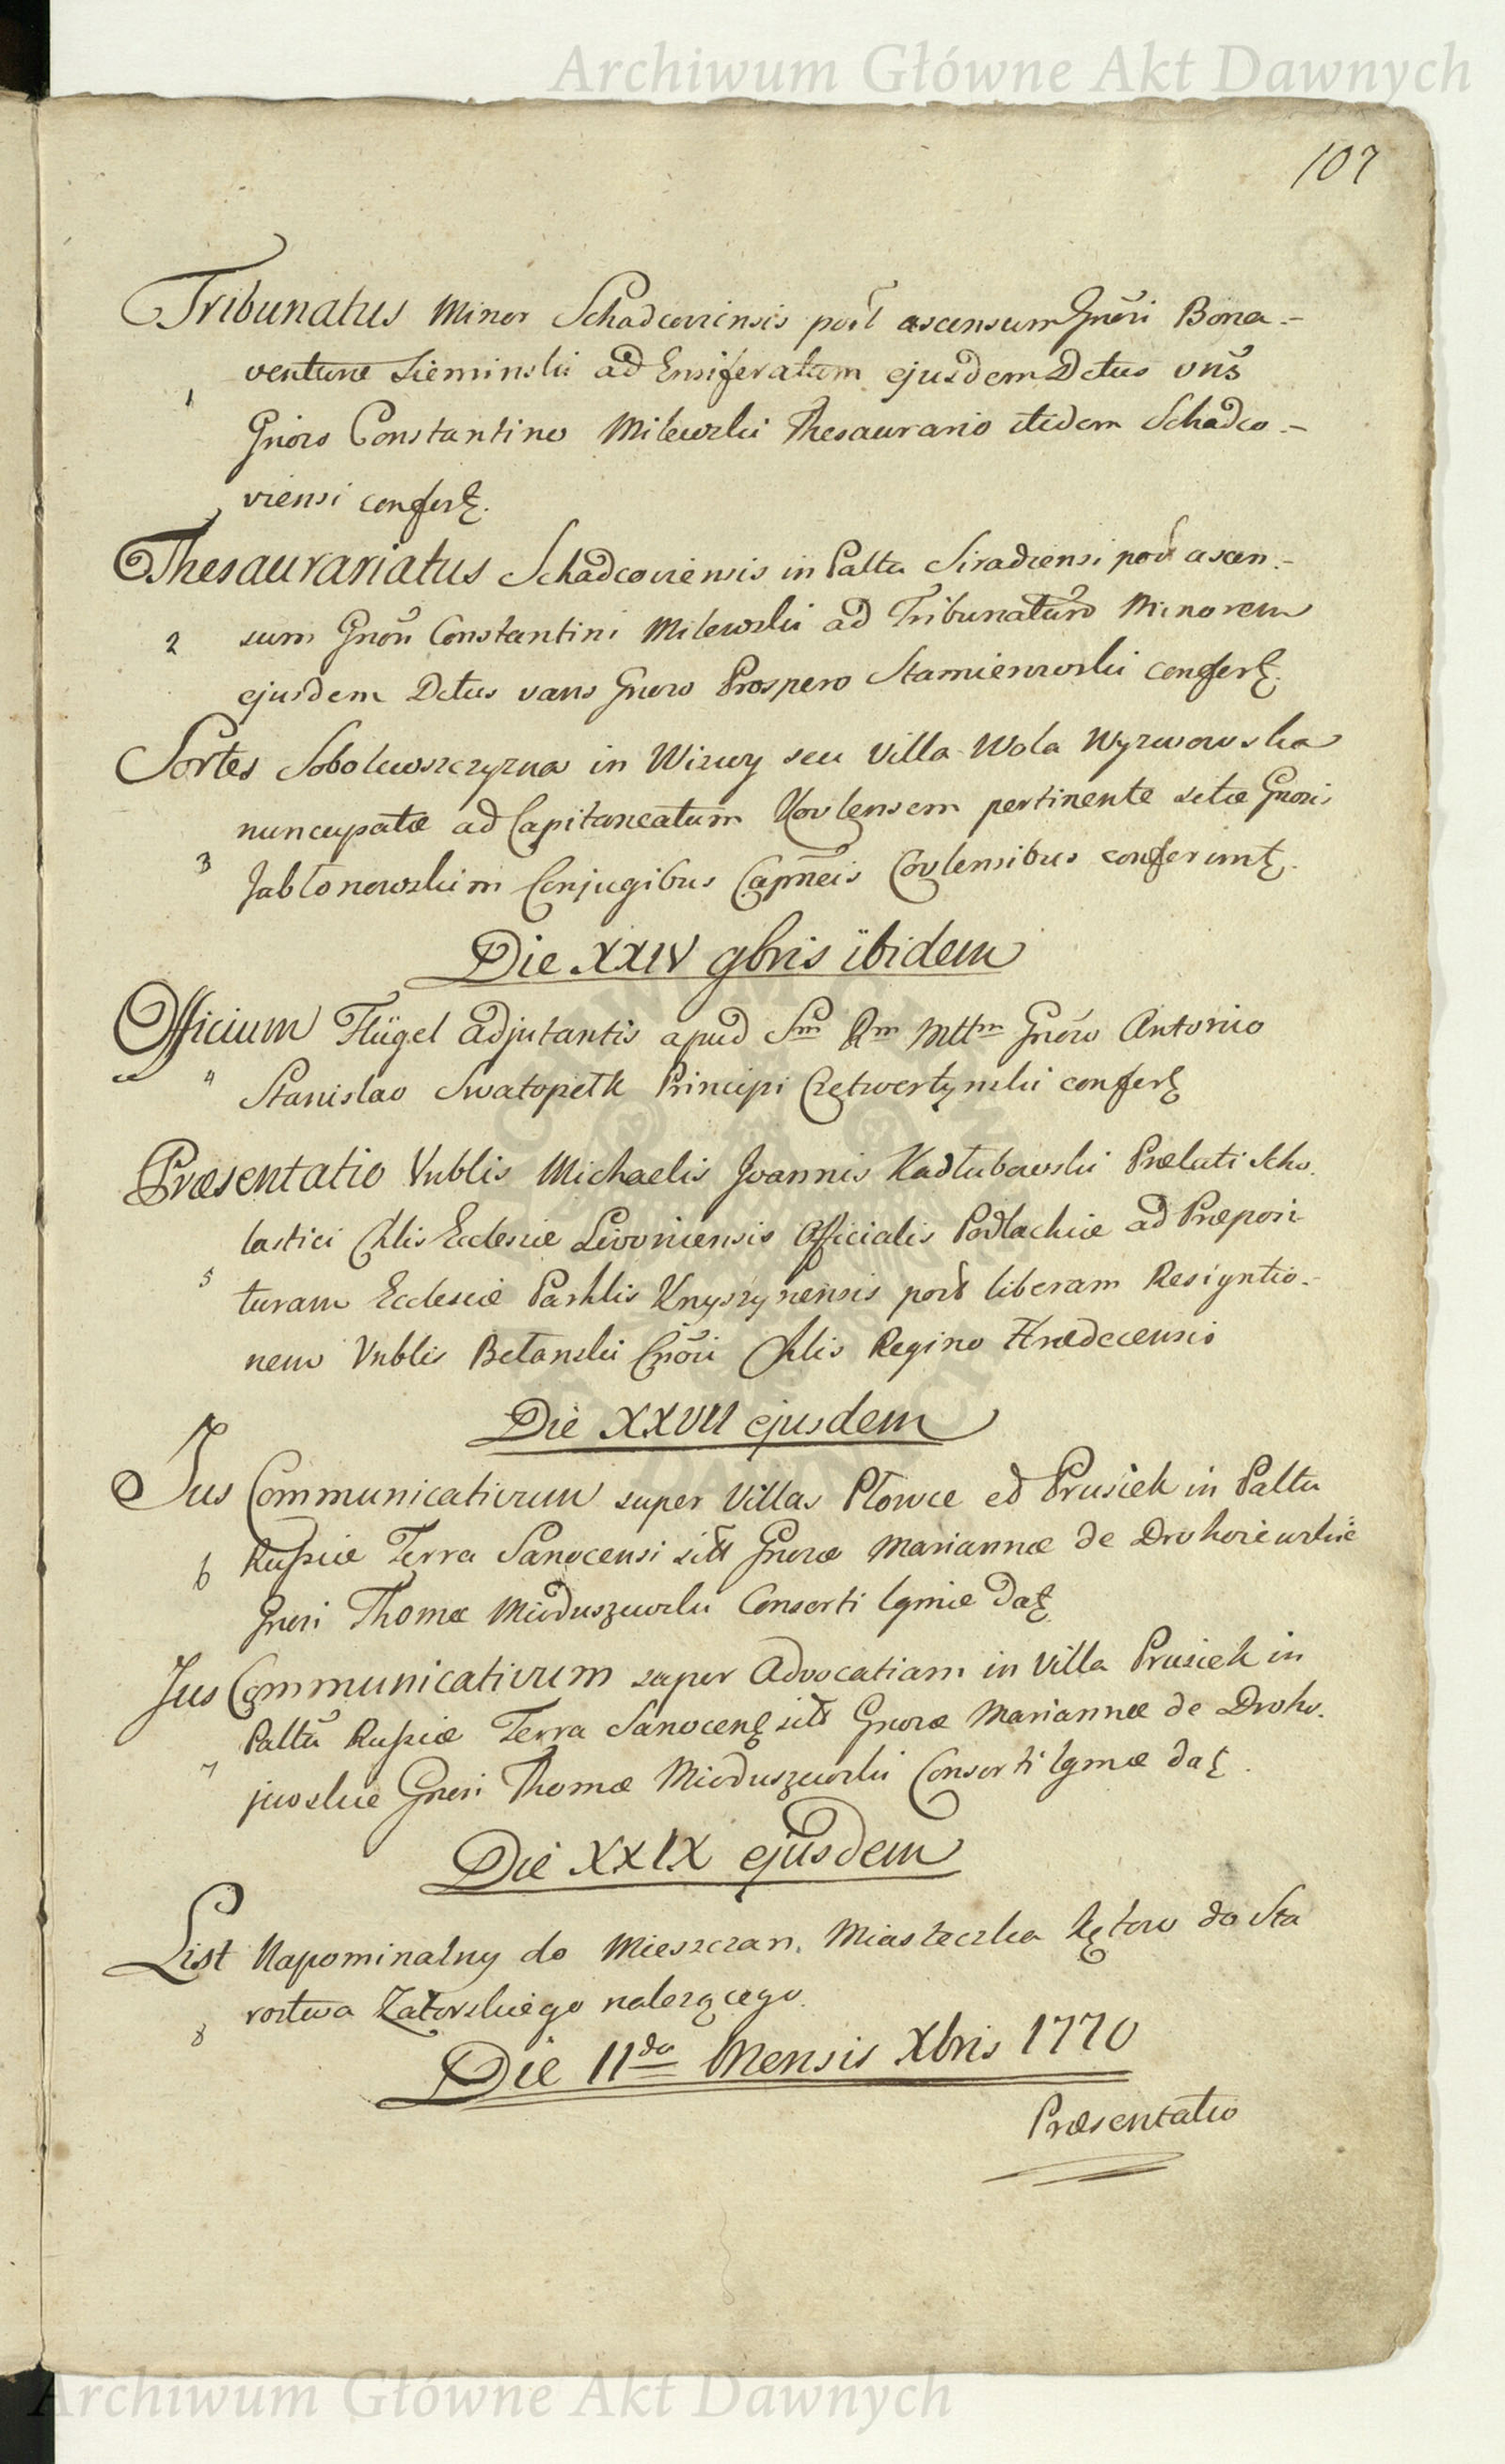 Archiwum Główne Akt Dawnych
107
Tribunatus Minor Schadcoviensis post ascensum Gnõri Bona-
venturæ Sieminski ad Ensiferatum ejusdem Dctus vñs
1
Gnoro Constantino Milewski Thesaurario itidem Schadco-
viensi confert.
Thesaurariatus Schadcoviensis in Paltu Siradiensi post ascen-
2 sum Gnõri Constantini Milewski ad Tribunatum Minorem
ejusdem Dctus vans Gnoro Prospero Stamierowski confert.
Sortes Sobolewszczyzna in Wizwy seu Villa Wola Wyzwowska
nuncupatæ ad Capitaneatum Kovlensem pertinente sitæ Gnoris
3 Jabłonowskim Conjugibus Capneis Covlensibus conferunt.
Die XXIV 9bris ibidem
Officium Flügel Adjutantis apud Sm Rm Mttm Gnõro Antonio
4 Stanislao Swatopełk Principi Czetwertynski confert
Præsentatio Vnblis Michaelis Joannis Kadłubowski Prælati Scho-
lastici Chlis Ecclesiæ Livoniensis Officialis Podlachiæ ad Præposi-
5 turam Ecclesiæ Parhlis Knyszynensis post liberam Resigntio-
nem Vnblis Betanski Cnõci Chlis Regino Hradecensis
Die XXVII ejusdem
Jus Communicativum super Villas Płowce ed Prusiek in Paltu
6 Russiæ Terra Sanocensi sitt Gnoræ Mariannæ de Drohoiewskie
Gnori Thomæ Mieduszewski Consorti lgmiæ dat
Jus Communicativum super Advocatiam in Villa Prusiek in
Paltu Russiæ Terra Sanocen sitt Gnoræ Mariannæ de Droho-
7 jwoskie Gnori Thomæ Mieduszewski Consorti lgmæ dat.
Die XXIX ejusdem
List Napominalny do Mieszczan. Miasteczka Kętow do Sta
8 rostwa Zatorskiego należącego.
Die 11da Mensis Xbris 1770
Præsentatio
Archiwum Główne Akt Dawnych